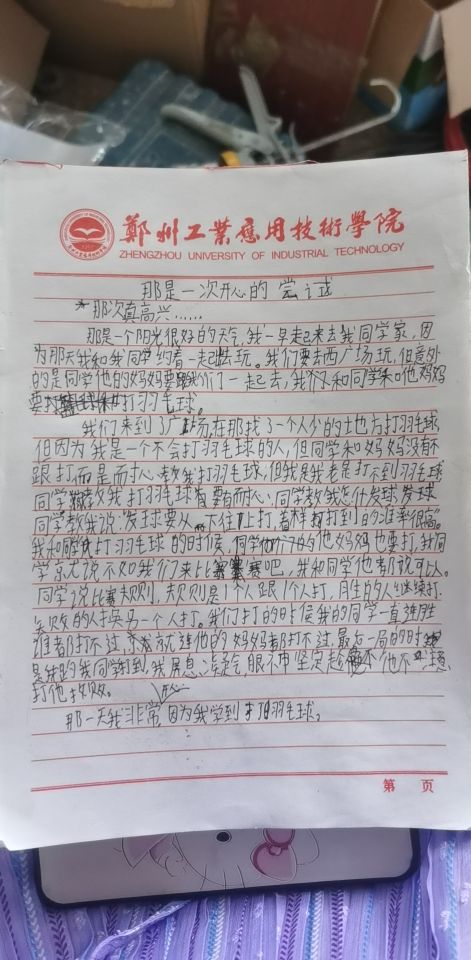 鄭州工業應用技術學院
ZHENGZHOU UNIVERSITY OF INDUSTRIAL TECHNOLOGY
那是一次开心的尝试
那次真高兴……
那是一个阳光很好的天气,我一早起来去我同学家,因
为那天我和我同学约着一起去玩。我们要去西广场玩,但意外
的是同学他的妈妈要跟我们一起去,我们又和同学和他妈妈
要打羽毛球。
我们来到了广场,在那找了一个人少的地方打羽毛球,
但因为我是一个不会打羽毛球的人,但同学和妈妈没有不
跟打而是而耐心教我打羽毛球,但我是我老是打不到羽毛球
同学教我打羽毛球要有耐心,同学教我怎什发球,发球
同学教我说:“发球要从下往上打,着样打到的准率很高”。
我和同学打羽毛球的时候,同学他妈妈也要打,我同
学京尤说不如我们来比赛吧,我和同学他都说可以。
同学说比赛规则,规则是1个人跟1个人打,月生的人继续打
失败的人换另一个人打。我们打的时侯我的同学一直连胜
谁都打不过,就连他的妈妈都打不过,最后一局的时
是我跟我同学,我屏息凝气,眼神中坚定
打他 败。
那一天我非常开心因为我学到打羽毛球。
第 页